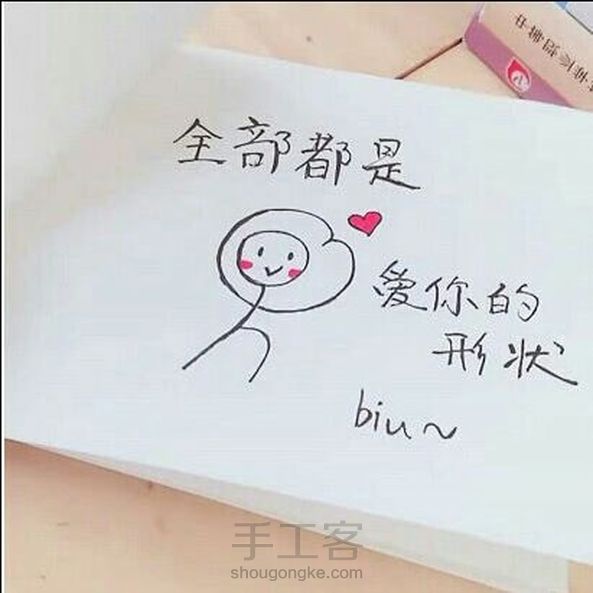 全部都是
爱你的
形状
biu~
手工客
shougongke.com